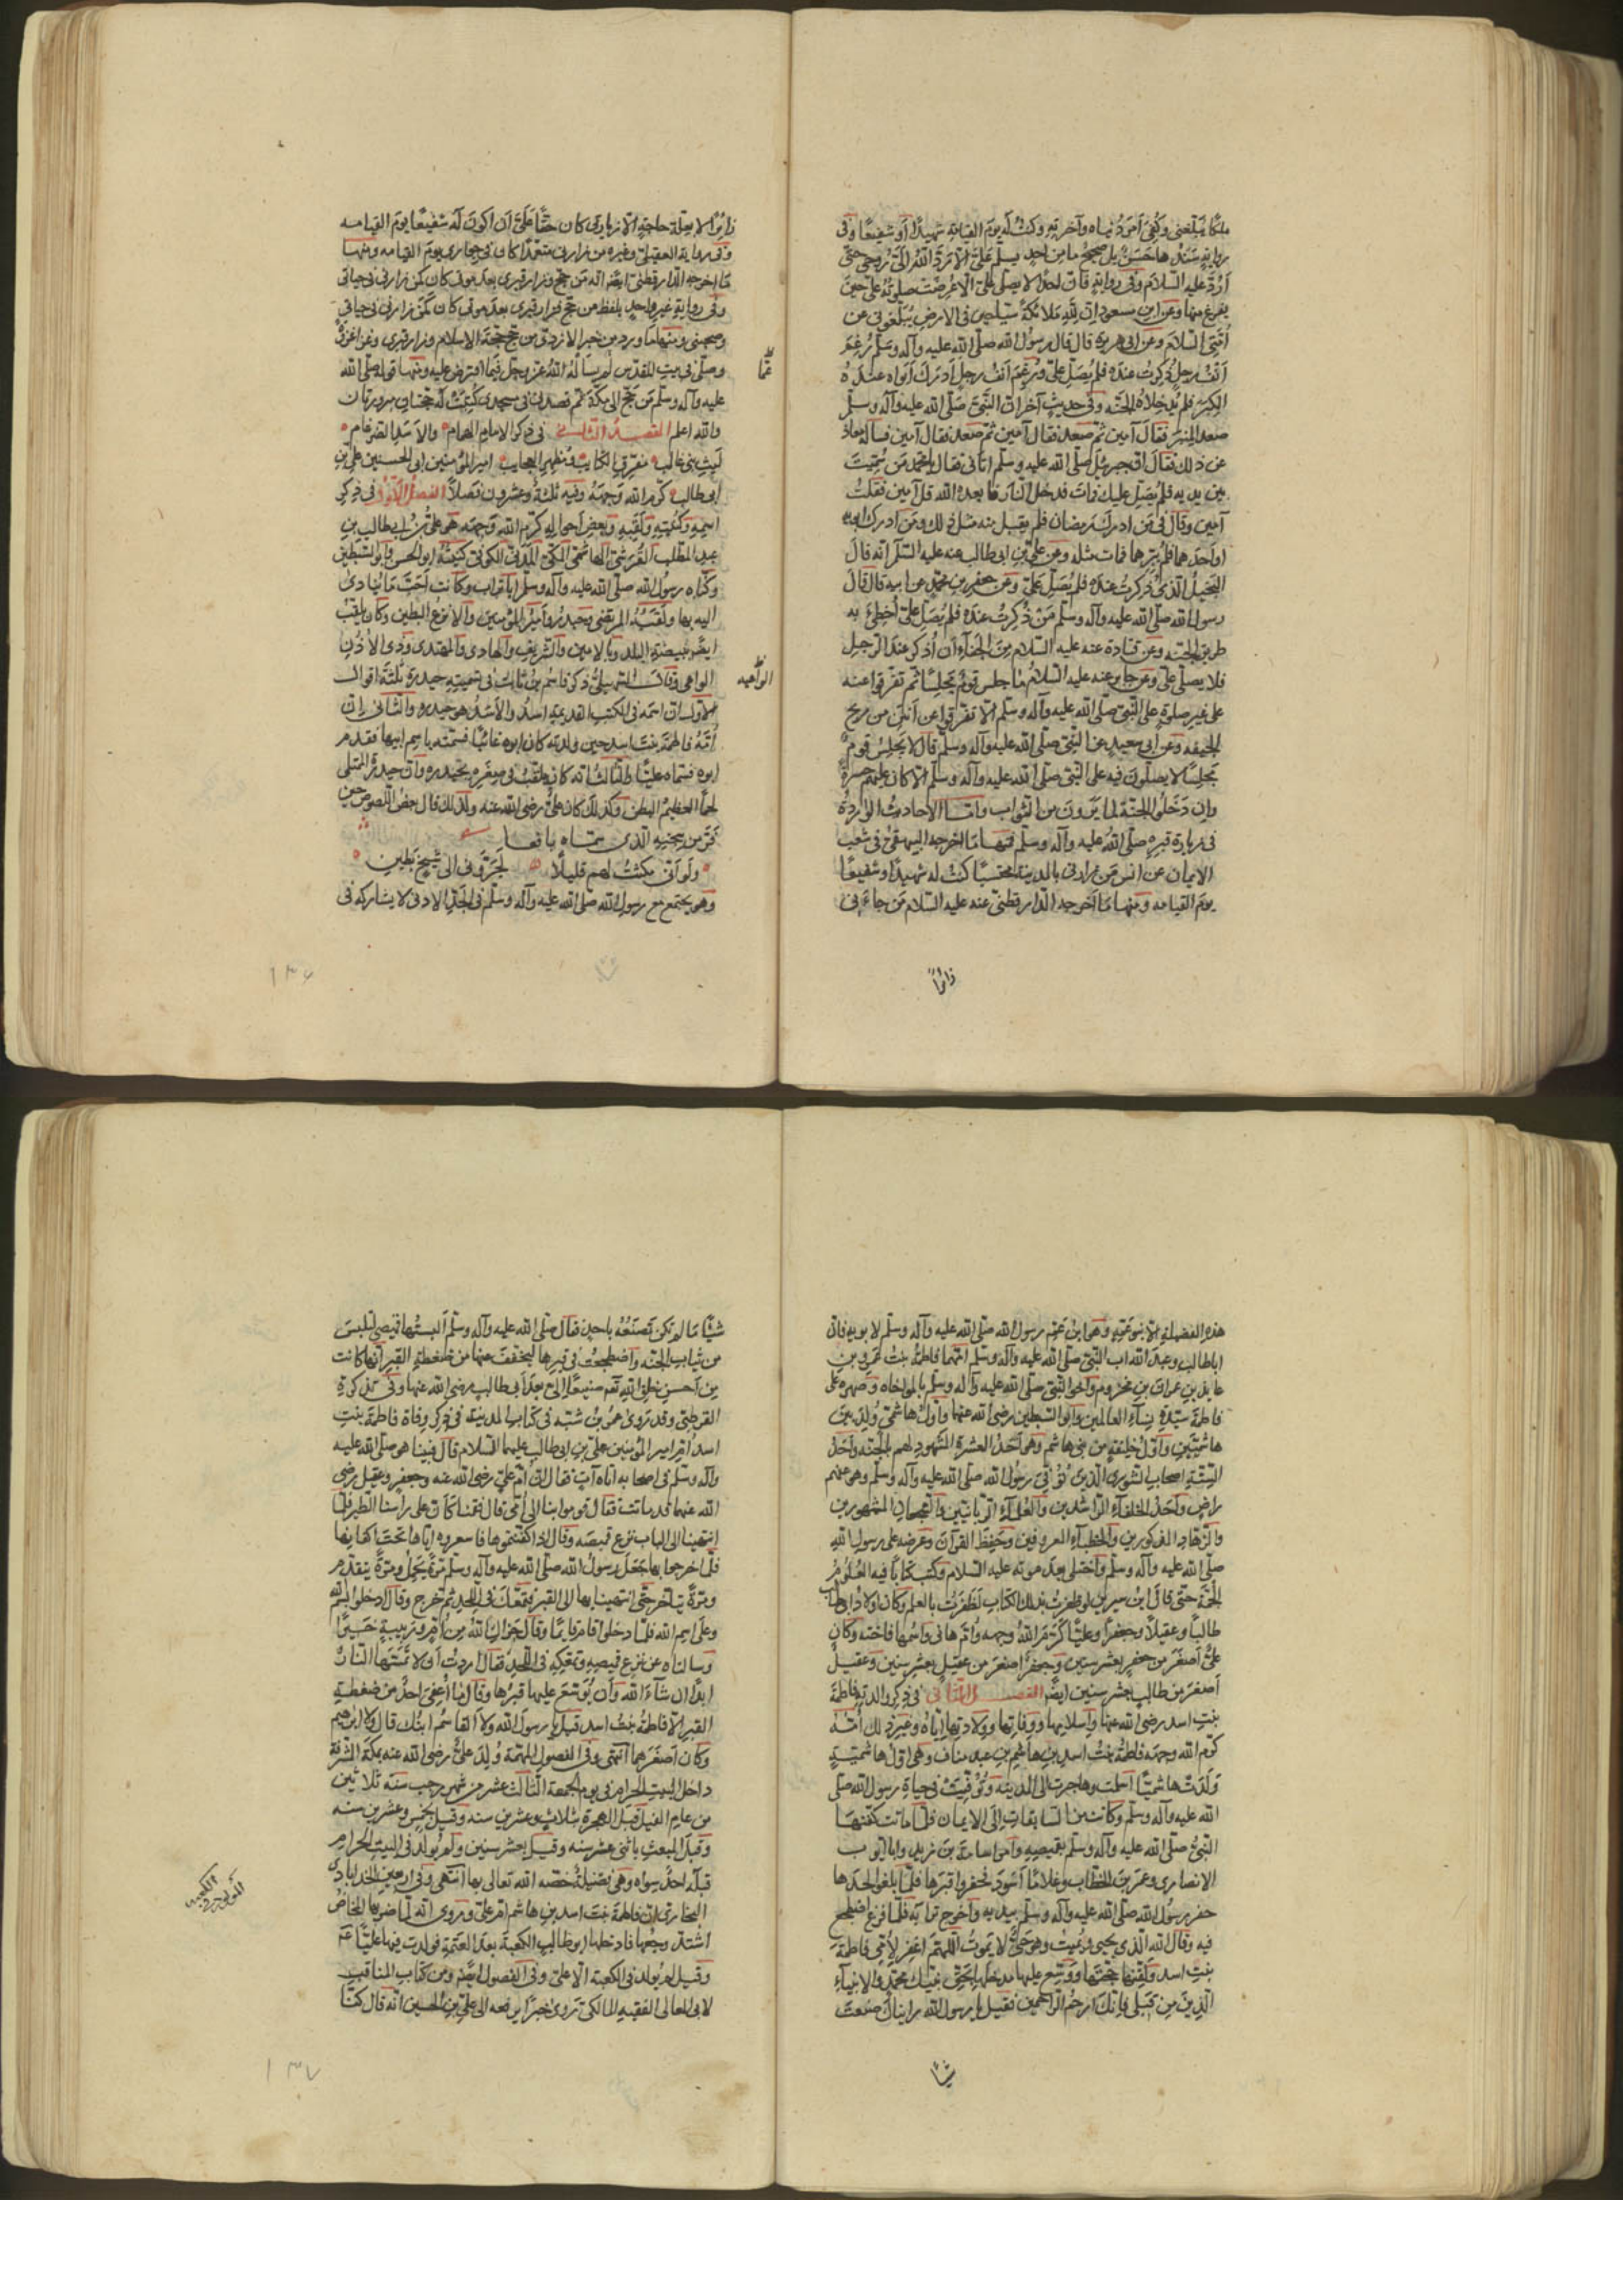 ملكا يبلغنى وكفى امر دنياه وآخرته وكنت له يوم القيامة شهيدا او شفيعا وفى
رواية سندها حسن بل صحيح ما من احد يسلم علىّ الا رد الله الىّ روحى حتى
ارد عليه السلام وفى رواية فان احدا لا يصلى علىّ الا عرضت صلوته علىّ حين
يفرغ منها وعن ابن مسعود ان لله ملائكة سياحين فى الارض يبلغونى عن
امتى السلام وعن ابى هريرة قال قال رسول الله صلى الله عليه وآله وسلم رغم
انف رجل ذكرت عنده فلم يصل علىّ ورغم انف رجل ادرك ابواه عنده
الكبر فلم يدخلاه الجنه وفى حديث آخر ان النبى صلى الله عليه وآله وسلم
صعد المنبر فقال آمين ثم صعد فقال آمين ثم صعد فقال آمين فساله معاذ
عن ذلك فقال ان جبريل صلى الله عليه وسلم اتانى فقال يا محمد من سُمّيت
بين يديه فلم يصل عليك فمات فدخل النار فابعده الله قل آمين فقلت
آمين وقال فى من ادرك رمضان فلم يقبل منه مثل ذلك ومن ادرك ابويه
او احدهما فلم يبرهما فمات مثله وعن على بن ابى طالب عنه عليه السلم انه قال
البخيل الذى ذكرت عنده فلم يصل علىّ وعن جعفر بن محمد عن ابيه قال قال
رسول الله صلى الله عليه وآله وسلم من ذكرت عنده فلم يصل علىّ اخطئ به
طريق الجنه وعن قتادة عنه عليه السلام من الجفاء ان اذكر عند الرجل
فلا يصلى علىّ وعن جابر عنه عليه السلام ما جلس قوم مجلسا ثم تفرقوا عنه
على غير صلوة على النبى صلى الله عليه وآله وسلم الا تفرقوا عن انتن من ريح
الجيفه وعن ابى سعيد عن النبى صلى الله عليه وآله وسلم قال لا يجلس قوم
مجلسا لا يصلون فيه على النبى صلى الله عليه وآله وسلم الا كان عليهم حسرة
وان دخلوا الجنة لما يرون من الثواب واما الاحاديث الواردة
فى زيارة قبره صلى الله عليه وآله وسلم فمنها ما اخرجه البيهقى فى شعب
الايمان عن انس من زارنى بالمدينة محتسبا كنت له شهيدا وشفيعا
يوم القيامه ومنها ما اخرجه الدارقطنى عنه عليه السلام من جاءنى
زائرا
زائرا لا حاجة الا زيارتى كان حقا علىّ ان اكون له شفيعا يوم القيامه
وفى رواية العقيلى وغيره من زارنى متعمدا كان فى جوارى يوم القيامه ومنها
ما اخرجه الدارقطنى ايضا انه من حج فزار قبرى بعد موتى كان كمن زارنى فى حياتى
وفى رواية غير واحد بلفظ من حج فزار قبرى بعد موتى كان كمن زارنى فى حياتى
وصحبنى ومنها ما ورد من خبر الازدى من حج حجة الاسلام وزار قبرى وغزا غزوة
وصلى فى بيت المقدس لم يساله الله عز وجل فيما افترض عليه ومنها قوله صلى الله
عليه وآله وسلم من حج الى مكة ثم قصدنى فى مسجدى كتبت له حجتان مبرورتان
والله اعلم المقصد الثالث فى ذكر الامام الهمام والاسد الضرغام
ليث بنى غالب مفرق الكتايب ومظهر العجايب امير المؤمنين ابى الحسنين على بن
ابى طالب كرم الله وجهه وفيه ثلثة وعشرون فصلا الفصل الاول فى ذكر
اسمه وكنيته ولقبه وبعض احواله كرم الله وجهه هو على بن ابى طالب بن
عبد المطلب القرشى الهاشمى المكى المدنى الكوفى كنيته ابو الحسن وابو السبطين
وكناه رسول الله صلى الله عليه وآله وسلم ابا تراب وكانت احب ما ينادى
اليه بها ولقبه المرتضى وحيدر وامير المؤمنين والانزع البطين وكان يلقب
ايضا ببيضة البلد وبالامين والشريف والهادى والمهتدى وذى الاذن
الواعى وقال السهيلى ذكر قاسم بن ثابت فى تسميته حيدرة ثلثة اقوال
الاول ان اسمه فى الكتب القديمة اسد والاسد هو حيدره والثانى ان
امه فاطمة بنت اسد حين ولدته كان ابوه غائبا فسمته باسم ابيها فقدم
ابوه فسماه عليا والثالث انه كان يلقب فى صغره بحيدره وان حيدرة الممتلى
لحما العظيم البطن وكذلك كان على رضى الله عنه ولذلك قال بعض اللصوص حين
فر من سجنه الذى سماه يافعا
ولو انى مكثت لهم قليلا لجرونى الى شيخ بطين
وهو يجتمع مع رسول الله صلى الله عليه وآله وسلم فى الجد الادنى لا يشاركه فى
عما
الواعيه
١٣٦
هذه الفضيلة الا بنو عمه وهو ابن عم رسول الله صلى الله عليه وآله وسلم لابويه فان
ابا طالب وعبد الله اب النبى صلى الله عليه وآله وسلم امهما فاطمة بنت عمرو بن
عايذ بن عمران بن مخزوم واخو النبى صلى الله عليه وآله وسلم بالمواخاه وصهره على
فاطمة سيدة نساء العالمين وابو السبطين رضى الله عنهما واول هاشمى ولد بين
هاشميين واول خليفة من بنى هاشم وهو احد العشرة المشهود لهم بالجنه واحد
الستة اصحاب الشورى الذين توفى رسول الله صلى الله عليه وآله وسلم وهو عنهم
راض واحد الخلفاء الراشدين والعلماء الربانيين والشجعان المشهورين
والزهاد المذكورين والخطباء المعروفين وحفظ القرآن وعرضه على رسول الله
صلى الله عليه وآله وسلم واختلى بعد موته عليه السلام وكتب كتابا فيه العلوم
الجمة حتى قال ابن سيرين لو ظفرت بذلك الكتاب لظفرت بالعلم وكان اولاد ابى طالب
طالبا وعقيلا وجعفرا وعليا كرم الله وجهه وام هانى واسمها فاخته وكان
على اصغر من جعفر بعشر سنين وجعفر اصغر من عقيل بعشر سنين وعقيل
اصغر من طالب بعشر سنين ايضا الفصل الثانى فى ذكر والدته فاطمة
بنت اسد رضى الله عنها واسلامها ووفاتها وولادتها اياه وغير ذلك امه
كرم الله وجهه فاطمة بنت اسد بن هاشم بن عبد مناف وهى اول هاشمية
ولدت هاشميا اسلمت وهاجرت الى المدينه وتوفيت فى حياة رسول الله صلى
الله عليه وآله وسلم وكانت من السابقات الى الايمان فلما ماتت كفنها
النبى صلى الله عليه وآله وسلم بقميصه وامر اسامة بن زيد وابا ايوب
الانصارى وعمر بن الخطاب وغلاما اسود فحفروا قبرها فلما بلغوا لحدها
حفر رسول الله صلى الله عليه وآله وسلم بيديه واخرج ترابه فلما فرغ اضطجع
فيه وقال الله الذى يحيى ويميت وهو حى لا يموت اللهم اغفر لامى فاطمة
بنت اسد ولقنها حجتها ووسع عليها مدخلها بحق نبيك محمد والانبياء
الذين من قبلى فانك ارحم الراحمين فقيل يا رسول الله رايناك صنعت
شيئا
شيئا ما لم تكن تصنعه باحد فقال صلى الله عليه وآله وسلم البستها قميصى لتلبس
من ثياب الجنه واضطجعت فى قبرها ليخفف عنها من ضغطة القبر انها كانت
من احسن خلق الله صنيعا الىّ بعد ابى طالب رضى الله عنها وفى تذكرة
القرطبى وقد روى عمر بن شبه فى كتاب المدينة فى ذكر وفاة فاطمة بنت
اسد ام امير المؤمنين على بن ابى طالب عليهما السلام قال فبينا هو صلى الله عليه
وآله وسلم فى اصحابه اتاه آت فقال ان ام على رضى الله عنه وجعفر وعقيل رضى
الله عنهما قد ماتت فقال قوموا بنا الى امى قال فقمنا كان على راسنا الطير فلما
انتهينا الى الباب نزع قميصه وقال اذا كفنتموها فاشعروه اياها تحت اكفانها
فلما خرجوا بها جعل رسول الله صلى الله عليه وآله وسلم مرة يحمل ومرة يتقدم
ومرة يتاخر حتى انتهينا بها الى القبر فتمعك فى اللحد ثم خرج وقال ادخلوا بسم الله
وعلى اسم الله فلما دخلوا قام قايما وقال جزاك الله من ام وربيبة خيرا
وسالناه عن نزع قميصه وتمعكه فى اللحد فقال اردت ان لا تمسها النار
ابدا ان شاء الله وان يوسع عليها قبرها وقال ما اعفى احد من ضغطة
القبر الا فاطمة بنت اسد قيل يا رسول الله ولا القاسم ابنك قال ولا ابراهيم
وكان اصغرهما انتهى وفى الفصول المهمة ولد على رضى الله عنه بمكة المشرفة
داخل البيت الحرام فى يوم الجمعة الثالث عشر من شهر رجب سنة ثلاثين
من عام الفيل قبل الهجرة بثلاث وعشرين سنه وقيل بخمس وعشرين سنه
وقبل المبعث باثنى عشر سنه وقيل بعشر سنين ولم يولد فى البيت الحرام
قبله احد سواه وهى فضيلة خصه الله تعالى بها انتهى وفى
البخارى ان فاطمة بنت اسد بن هاشم ام على وروى انه لما ضربها المخاض
اشتد وجعها فادخلها ابو طالب الكعبة بعد العتمة فولدت فيها عليا
وقيل لم يولد فى الكعبة الا على وفى الفصول ايضا ومن كتاب المناقب
لابى المعالى الفقيه المالكى روى خبرا يرفعه الى على بن الحسين انه قال كنا
١٣٧